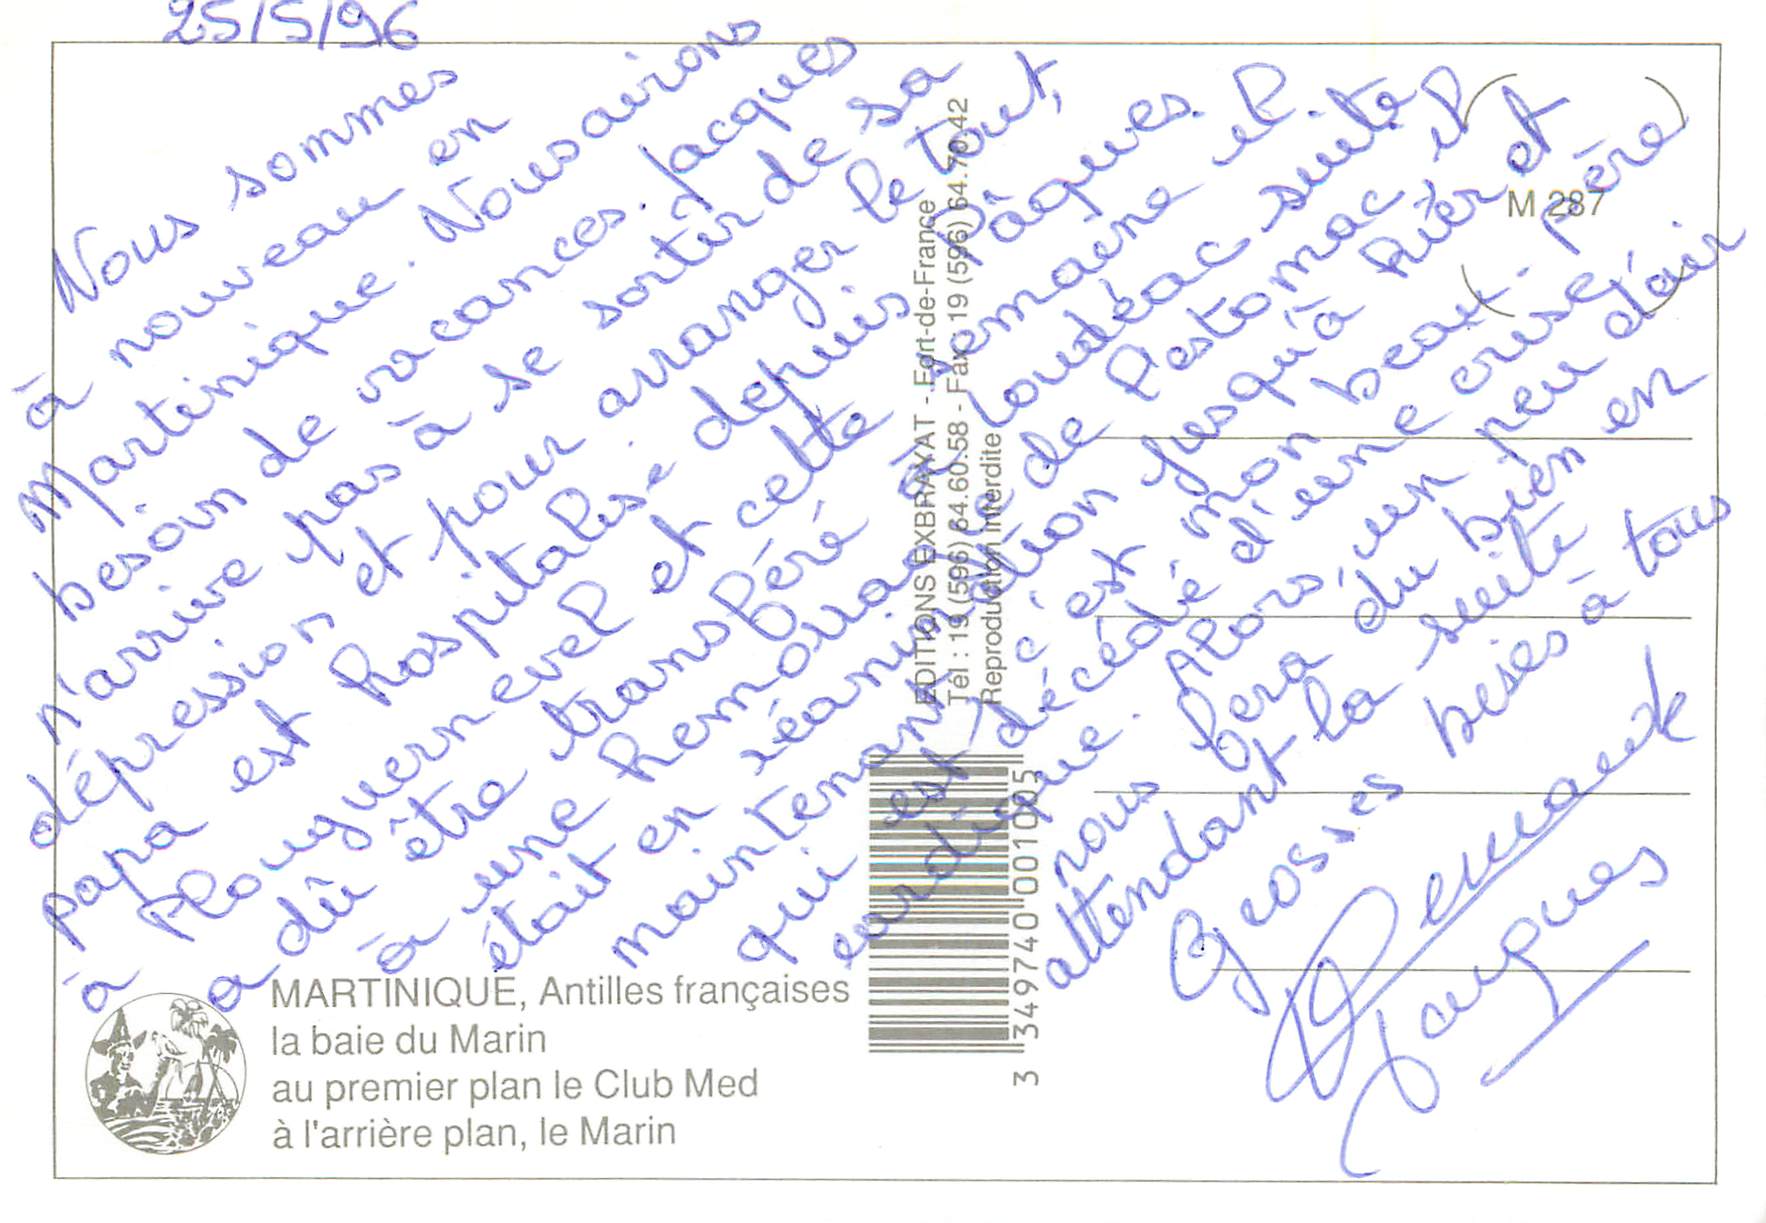 25/5/96
Nous sommes
à nouveau en
Martinique. Nous avions
besoin de vacances. Jacques
n'arrive pas à se sortir de sa
dépression et pour arranger le tout,
papa est hospitalisé depuis Pâques.
à Plouguernevel et cette semaine il
a dû être transféré à Loudéac suite
à une hémorragie de l'estomac il
était en réanimation jusqu'à hier et
maintenant c'est mon beau-père
qui est décédé d'une crise
cardiaque. Alors, un peu d'air
nous fera du bien en
attendant la suite
Grosses bises à tous
Jacques
M 287
EDITIONS EXBRAYAT - Fort-de-France
Tél : 19 (596) 64.60.58 - Fax 19 (596) 64.70.42
Reproduction interdite
3 349740 001005
MARTINIQUE, Antilles françaises
la baie du Marin
au premier plan le Club Med
à l'arrière plan, le Marin